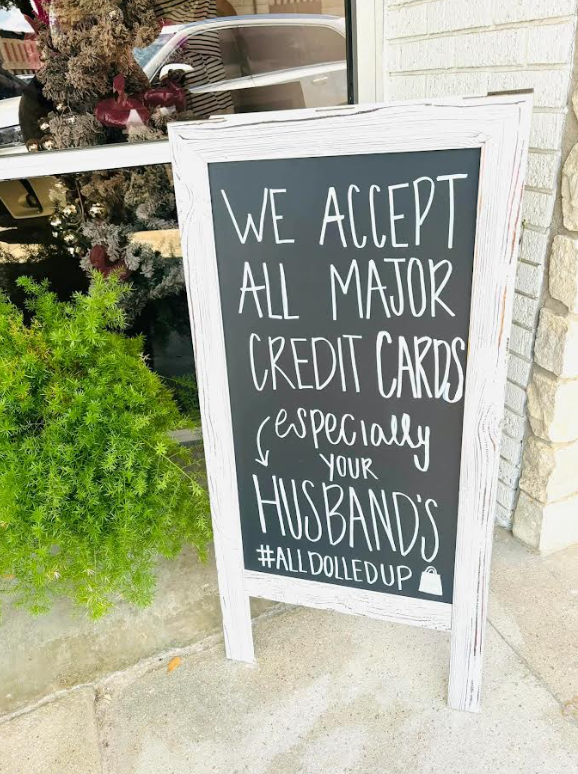 WE ACCEPT
ALL MAJOR
CREDIT CARDS
especially
YOUR
HUSBAND'S
#ALLDOLLEDUP